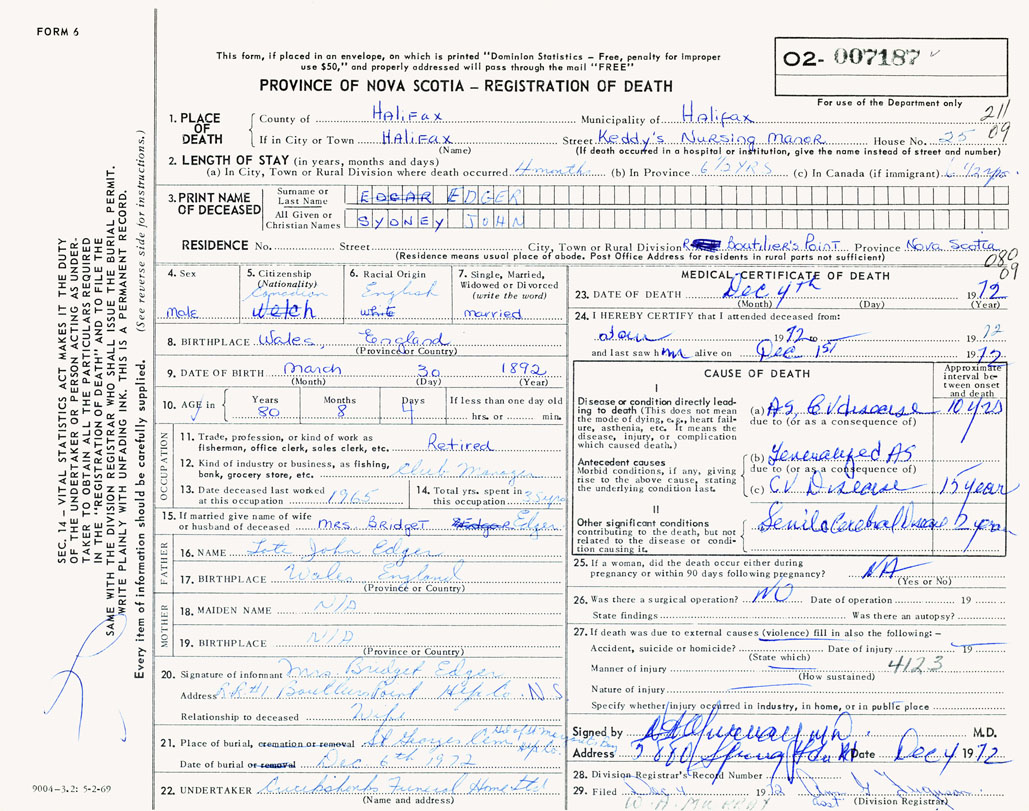 FORM 6
This form, if placed in an envelope, on which is printed "Dominion Statistics – Free, penalty for improper
use $50," and properly addressed will pass through the mail "FREE"
PROVINCE OF NOVA SCOTIA – REGISTRATION OF DEATH
02- 007187
For use of the Department only
211
09
1. PLACE OF DEATH
County of Halifax Municipality of Halifax
If in City or Town Halifax Street Keddy's Nursing Manor House No. 25
(Name) (If death occurred in a hospital or institution, give the name instead of street and number)
2. LENGTH OF STAY (in years, months and days)
(a) In City, Town or Rural Division where death occurred 4 month (b) In Province 6 1/2 YRS (c) In Canada (if immigrant) 6 1/2 yrs.
3. PRINT NAME OF DECEASED
Surname or Last Name EDGAR EDGER
All Given or Christian Names SYDNEY JOHN
RESIDENCE No. Street City, Town or Rural Division Boutilier's Point Province Nova Scotia
(Residence means usual place of abode. Post Office Address for residents in rural parts not sufficient)
080
09
4. Sex
male
5. Citizenship
(Nationality)
Canadian
welch
6. Racial Origin
English
white
7. Single, Married,
Widowed or Divorced
(write the word)
married
8. BIRTHPLACE Wales, England
(Province or Country)
9. DATE OF BIRTH March 30 1892
(Month) (Day) (Year)
10. AGE in
Years Months Days If less than one day old
80 8 4 hrs. or min.
OCCUPATION
11. Trade, profession, or kind of work as
fisherman, office clerk, sales clerk, etc. Retired
12. Kind of industry or business, as fishing,
bank, grocery store, etc. Club Manager
13. Date deceased last worked
at this occupation 1965
14. Total yrs. spent in
this occupation
15. If married give name of wife
or husband of deceased Mrs Bridget Edgar Edger
FATHER
16. NAME Late John Edger
17. BIRTHPLACE Wales England
(Province or Country)
MOTHER
18. MAIDEN NAME N/A
19. BIRTHPLACE N/A
(Province or Country)
20. Signature of informant Mrs Bridget Edger
Address R.R#1 Boutiliers Point Hfx Co N S
Relationship to deceased Wife
21. Place of burial, cremation or removal St Georges Cem
Date of burial or removal Dec 6th 1972
22. UNDERTAKER Cruikshanks Funeral Home Ltd
(Name and address)
MEDICAL CERTIFICATE OF DEATH
23. DATE OF DEATH Dec 4th 1972
(Month) (Day) (Year)
24. I HEREBY CERTIFY that I attended deceased from:
1972 to 19 72
and last saw him alive on Dec 1st 1972
CAUSE OF DEATH
Approximate interval between onset and death
I
Disease or condition directly leading to death (This does not mean the mode of dying, e.g., heart failure, asthenia, etc. It means the disease, injury, or complication which caused death.)
(a) A.S. C.V disease 10 yrs
due to (or as a consequence of)
Antecedent causes
Morbid conditions, if any, giving rise to the above cause, stating the underlying condition last.
(b) Generalized AS
due to (or as a consequence of)
(c) C.V Disease 15 year
II
Other significant conditions contributing to the death, but not related to the disease or condition causing it.
Senile Cerebral Disease 2 year
25. If a woman, did the death occur either during
pregnancy or within 90 days following pregnancy? NA
(Yes or No)
26. Was there a surgical operation? NO Date of operation 19
State findings Was there an autopsy?
27. If death was due to external causes (violence) fill in also the following: –
Accident, suicide or homicide? Date of injury 19
(State which)
Manner of injury 4123
(How sustained)
Nature of injury
Specify whether injury occurred in industry, in home, or in public place
Signed by M.D.
Address 5880 Spring Garden Rd Date Dec 4 1972
28. Division Registrar's Record Number
29. Filed Dec 4 1972
(Division Registrar)
SEC. 14 – VITAL STATISTICS ACT MAKES IT THE DUTY
OF THE UNDERTAKER OR PERSON ACTING AS UNDER-
TAKER TO OBTAIN ALL THE PARTICULARS REQUIRED
IN THE "REGISTRATION OF DEATH" AND TO FILE THE
SAME WITH THE DIVISION REGISTRAR WHO SHALL ISSUE THE BURIAL PERMIT.
WRITE PLAINLY WITH UNFADING INK. THIS IS A PERMANENT RECORD.
Every item of information should be carefully supplied. (See reverse side for instructions.)
9004–3.2: 5-2-69